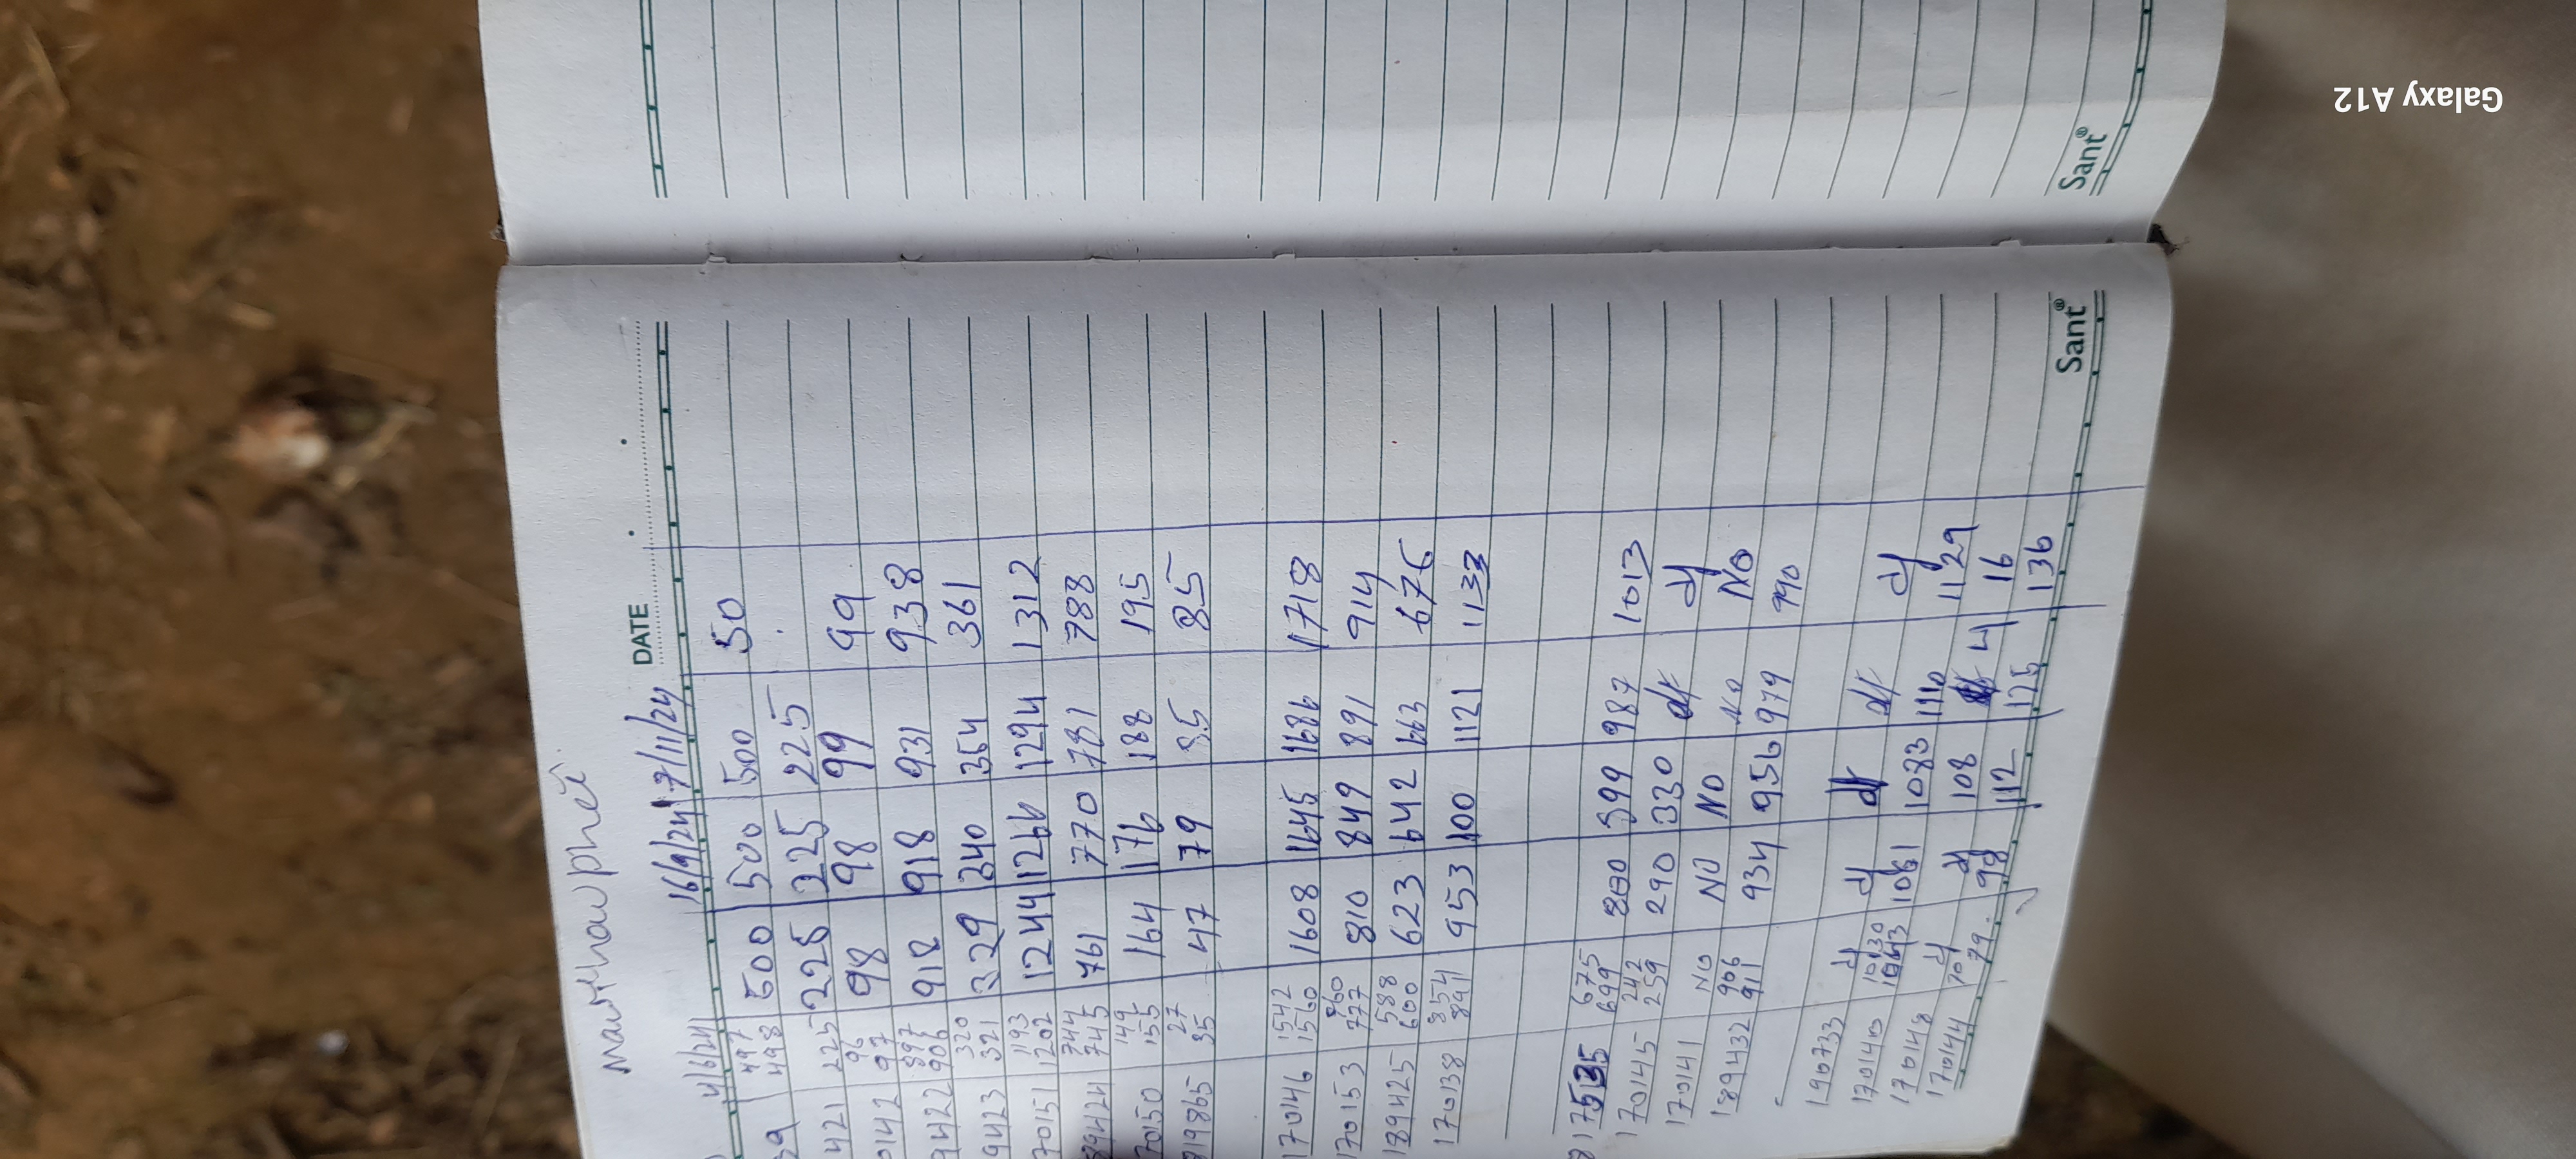 DATE
4/6/24 16/9/24 7/11/24
39 497 498 500 500 500 50
421 225 225 225 225
0142 96 97 98 98 99 99
9422 897 906 918 918 931 938
9423 320 321 329 340 354 361
70151 1193 1202 1244 1266 1294 1312
89424 744 745 761 770 781 788
70150 149 155 164 176 188 195
819865 27 35 47 79 85 85
170146 1542 1560 1608 1645 1686 1718
170153 777 810 849 891 914
189425 588 600 623 642 663 676
170138 854 891 953 100 1121 1133
817535 675 699 987 1013
170145 242 259 290 330 df dy
170141 NO NO NO No No
189432 906 911 934 956 979 990
190733 dy dy df df dy
170140 1030 1043 1061 1083 1110 1129
170148 dy dy 108 4 16
170144 70 79 98 112 125 136
Sant®
Sant®
Galaxy A12